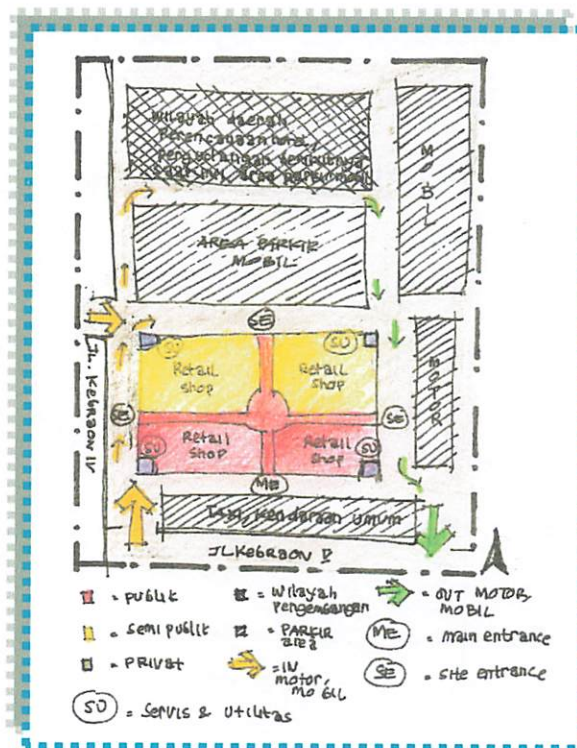 wilayah daerah
Perencanaan hotel,
saat ini, area parkir mobil
MOBIL
AREA PARKIR
MOBIL
SE
SU
SU
Retail
shop
Retail
shop
MOTOR
JL. KEBRAON IV
SE
SE
Retail
shop
Retail
shop
SU
SU
ME
Taxi, Kendaraan umum
JL KEBRAON V
= PUBLIK
= Semi publik
= PRIVAT
SU = Servis & utilitas
= wilayah
pengembangan
= PARKIR
area
= IN
motor,
mobil
= OUT MOTOR
MOBIL
ME = main entrance
SE = site entrance